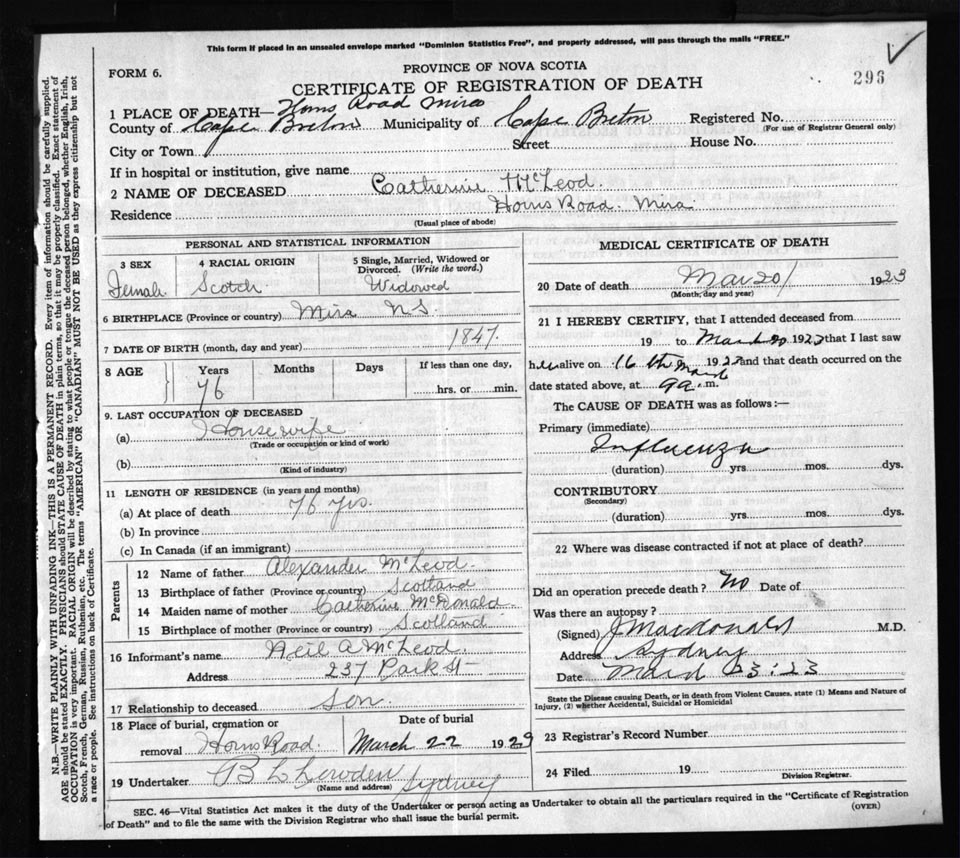 This form if placed in an unsealed envelope marked "Dominion Statistics Free", and properly addressed, will pass through the mails "FREE."
FORM 6.
PROVINCE OF NOVA SCOTIA
296
CERTIFICATE OF REGISTRATION OF DEATH
1 PLACE OF DEATH— Horns Road Mira
County of Cape Breton Municipality of Cape Breton Registered No.
(For use of Registrar General only)
City or Town Street House No.
If in hospital or institution, give name
2 NAME OF DECEASED Catherine McLeod.
Residence Horns Road. Mira
(Usual place of abode)
PERSONAL AND STATISTICAL INFORMATION
3 SEX 4 RACIAL ORIGIN 5 Single, Married, Widowed or Divorced. (Write the word.)
Female Scotch Widowed
6 BIRTHPLACE (Province or country) Mira N S.
7 DATE OF BIRTH (month, day and year) 1847.
8 AGE Years Months Days If less than one day,
76 hrs. or min.
9. LAST OCCUPATION OF DECEASED
(a) Housewife
(Trade or occupation or kind of work)
(b)
(Kind of industry)
11 LENGTH OF RESIDENCE (in years and months)
(a) At place of death 76 yrs.
(b) In province
(c) In Canada (if an immigrant)
Parents
12 Name of father Alexander McLeod.
13 Birthplace of father (Province or country) Scotland
14 Maiden name of mother Catherine McDonald
15 Birthplace of mother (Province or country) Scotland
16 Informant's name Neil A McLeod.
Address 237 Park St
17 Relationship to deceased Son.
18 Place of burial, cremation or removal Horns Road. Date of burial March 22 1923
19 Undertaker B L Lewden Sydney
(Name and address)
MEDICAL CERTIFICATE OF DEATH
20 Date of death Mar 20/ 1923
(Month, day and year)
21 I HEREBY CERTIFY, that I attended deceased from
19 to March 20 1923 that I last saw
her alive on 16 th 192 and that death occurred on the
date stated above, at 9 a. m.
The CAUSE OF DEATH was as follows:—
Primary (immediate)
Influenza
(duration) yrs. mos. dys.
CONTRIBUTORY
(Secondary)
(duration) yrs. mos. dys.
22 Where was disease contracted if not at place of death?
Did an operation precede death? No Date of
Was there an autopsy?
(Signed) J Macdonald M.D.
Address Sydney
Date 23:23
State the Disease causing Death, or in death from Violent Causes, state (1) Means and Nature of
Injury, (2) whether Accidental, Suicidal or Homicidal
23 Registrar's Record Number
24 Filed 19
Division Registrar.
SEC. 46—Vital Statistics Act makes it the duty of the Undertaker or person acting as Undertaker to obtain all the particulars required in the "Certificate of Registration
of Death" and to file the same with the Division Registrar who shall issue the burial permit.
(OVER)
N.B.—WRITE PLAINLY WITH UNFADING INK—THIS IS A PERMANENT RECORD. Every item of information should be carefully supplied.
AGE should be stated EXACTLY. PHYSICIANS should STATE CAUSE OF DEATH in plain terms, so that it may be properly classified. Exact statement of
OCCUPATION is very important. RACIAL ORIGIN will be described by stating to what people or tongue the deceased person belonged, whether English, Irish,
Scotch, French, German, Russian, Ruthenian, etc. The terms "AMERICAN" or "CANADIAN" MUST NOT BE USED as they express citizenship but not
a race or people. See instructions on back of Certificate.